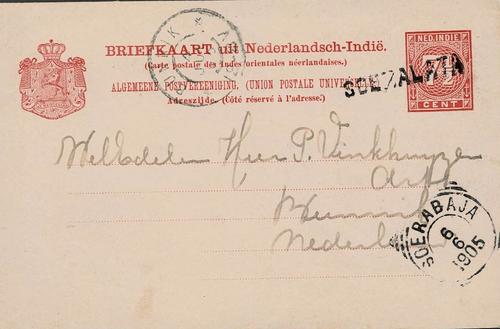 BRIEFKAART uit Nederlandsch-Indië.
(Carte postale des Indes orientales néerlandaises.)
ALGEMEENE POSTVEREENIGING. (UNION POSTALE UNIVERSELLE)
Adreszijde. (Côté réservé à l'adresse.)
NED. INDIE
CENT
SOEMALATA
WelEdelen Heer P. Vinkhuyzen
Arts
Nederland
SOERABAJA
6
6
1905